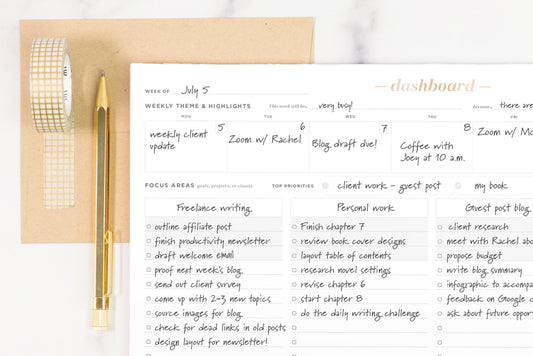 — dashboard —
WEEK OF July 5
WEEKLY THEME & HIGHLIGHTS This week will be, very busy! Because, there are
MON TUE WED THU FRI
5 6 7 8
weekly client update
Zoom w/ Rachel
Blog draft due!
Coffee with Joey at 10 a.m.
Zoom w/
FOCUS AREAS goals, projects, or clients TOP PRIORITIES client work - guest post my book
Freelance writing
outline affiliate post
finish productivity newsletter
draft welcome email
proof next week's blog
send out client survey
come up with 2-3 new topics
source images for blog
check for dead links in old posts
design layout for newsletter!
Personal work
Finish chapter 7
review book cover designs
layout table of contents
research novel settings
revise chapter 6
start chapter 8
do the daily writing challenge
Guest post blog
client research
meet with Rachel
propose budget
write blog summary
infographic to
feedback on Google
ask about future